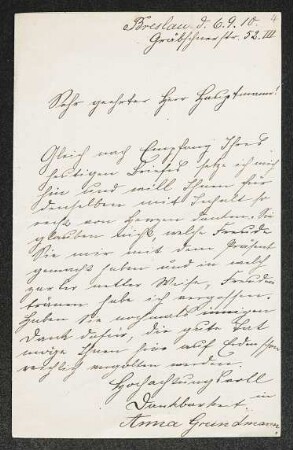 Breslau d. 6.9.10.
4
Gräbschnerstr. 52. III
Sehr geehrter Herr Hauptmann!
Gleich nach Empfang Ihres
heutigen Briefes setze ich mich
hin und will Ihnen für
denselben mit Inhalt so
recht von Herzen danken. Sie
glauben nicht, welche Freude
Sie mir mit dem Präsent
gemacht haben und in solch
gar netter Weise, Freuden-
tränen habe ich vergossen.
Haben Sie nochmals innigen
Dank dafür, die gute Tat
möge Ihnen hier auf Erden schon
reichlich vergolten werden.
Hochachtungsvoll
in
Dankbarkeit
Anna Grundmann.